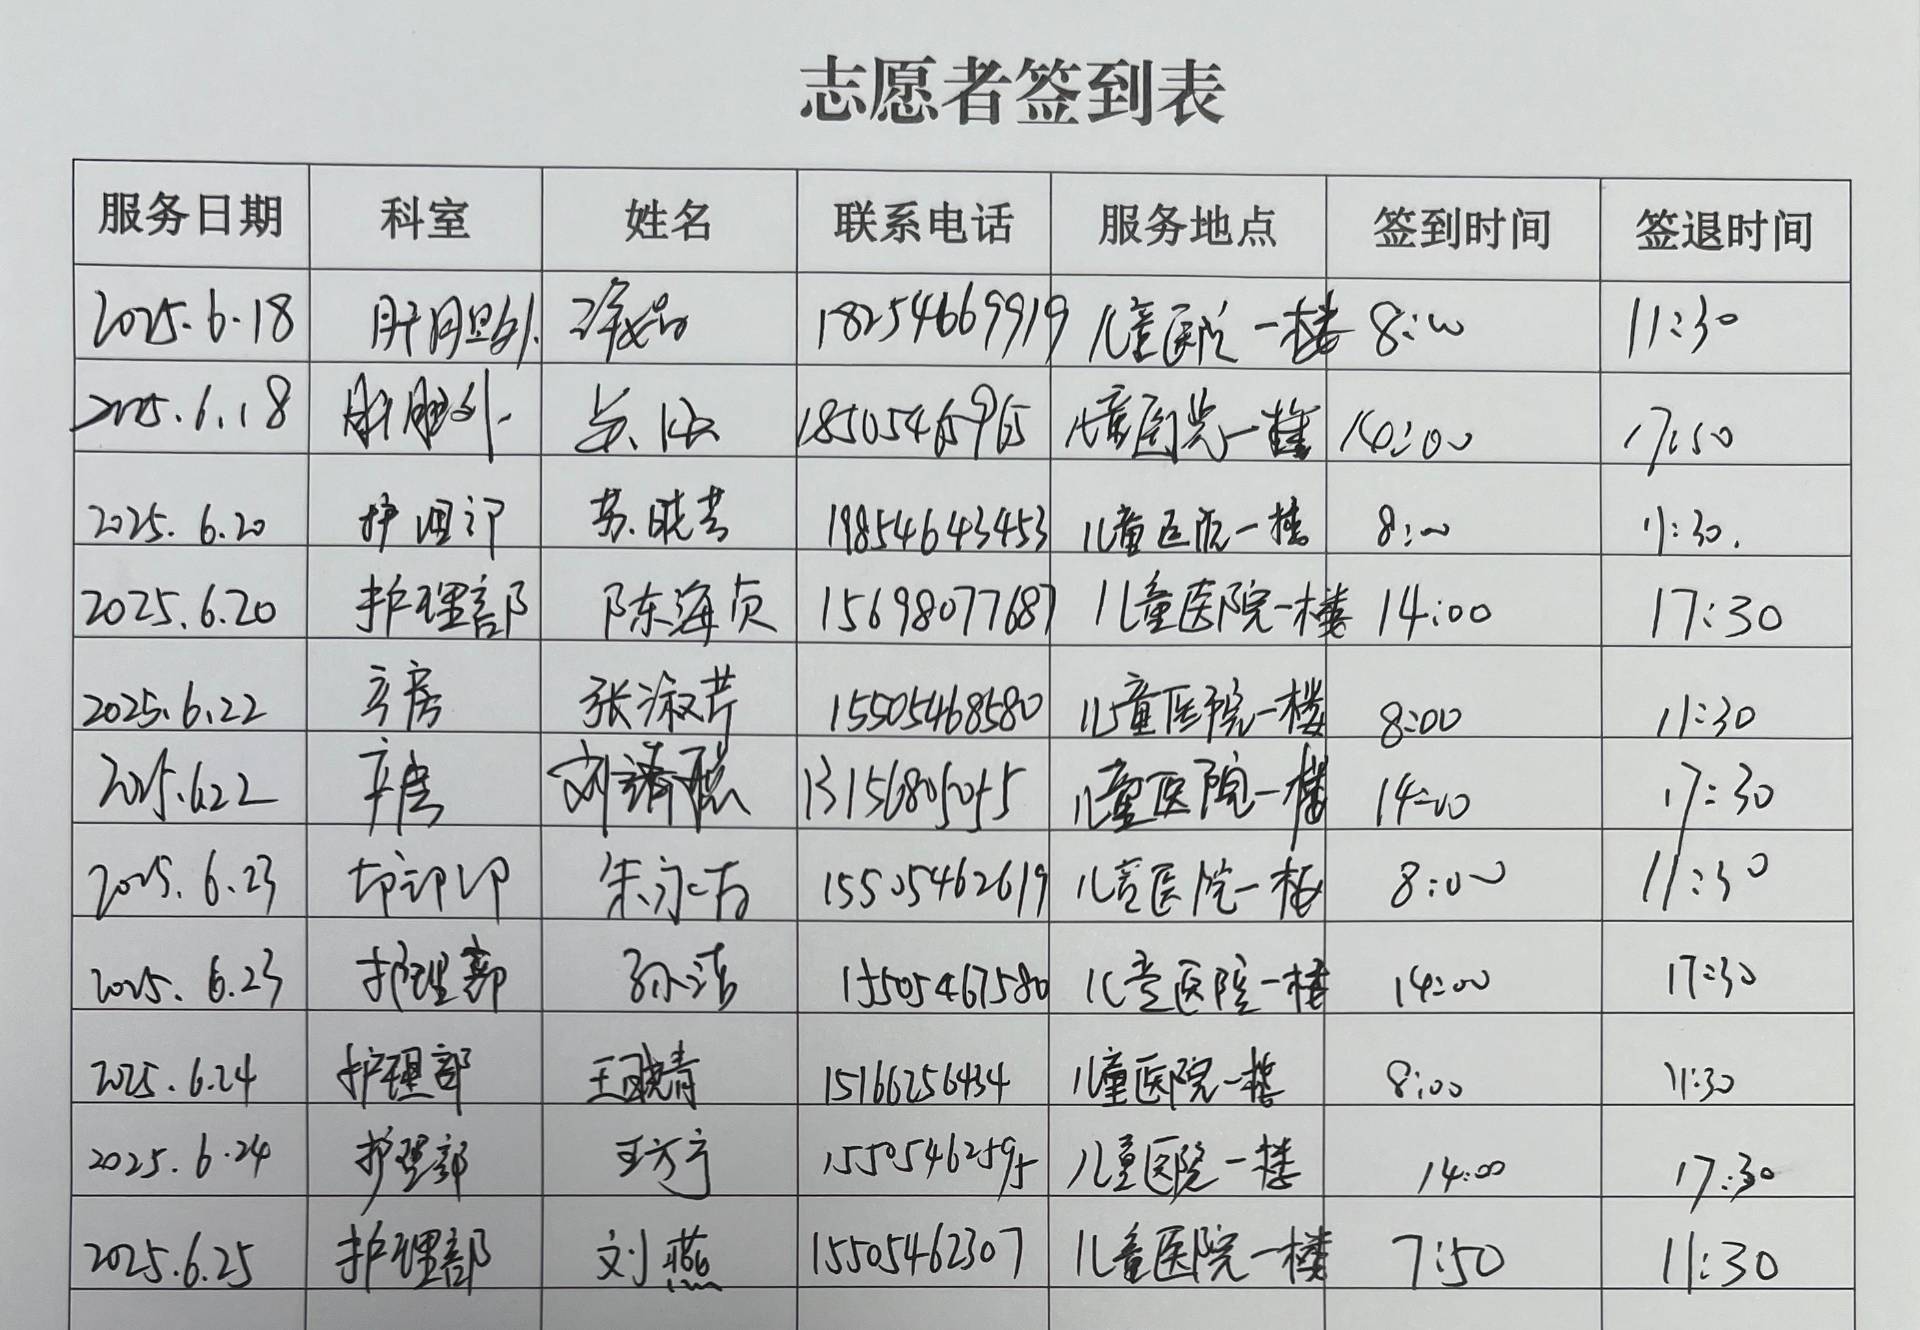 志愿者签到表
服务日期 科室 姓名 联系电话 服务地点 签到时间 签退时间
2025.6.18 肝胆外 18254669919 儿童医院一楼 8:00 11:30
2025.6.18 肝胆外 18505465965 儿童医院一楼 14:00 17:50
2025.6.20 护理部 苏晓芸 19854643453 儿童医院一楼 8:00 11:30.
2025.6.20 护理部 陈海贞 15698077687 儿童医院一楼 14:00 17:30
2025.6.22 产房 张淑芹 15505468580 儿童医院一楼 8:00 11:30
2025.6.22 产房 刘 儿童医院一楼 14:00 17:30
2025.6.23 朱永吉 15505462619 儿童医院一楼 8:00 11:30
2025.6.23 护理部 孙洁 15505467580 儿童医院一楼 14:00 17:30
2025.6.24 护理部 王晓青 15166256434 儿童医院一楼 8:00 11:30
2025.6.24 护理部 王方宁 15505462595 儿童医院一楼 14:00 17:30
2025.6.25 护理部 刘燕 15505462307 儿童医院一楼 7:50 11:30